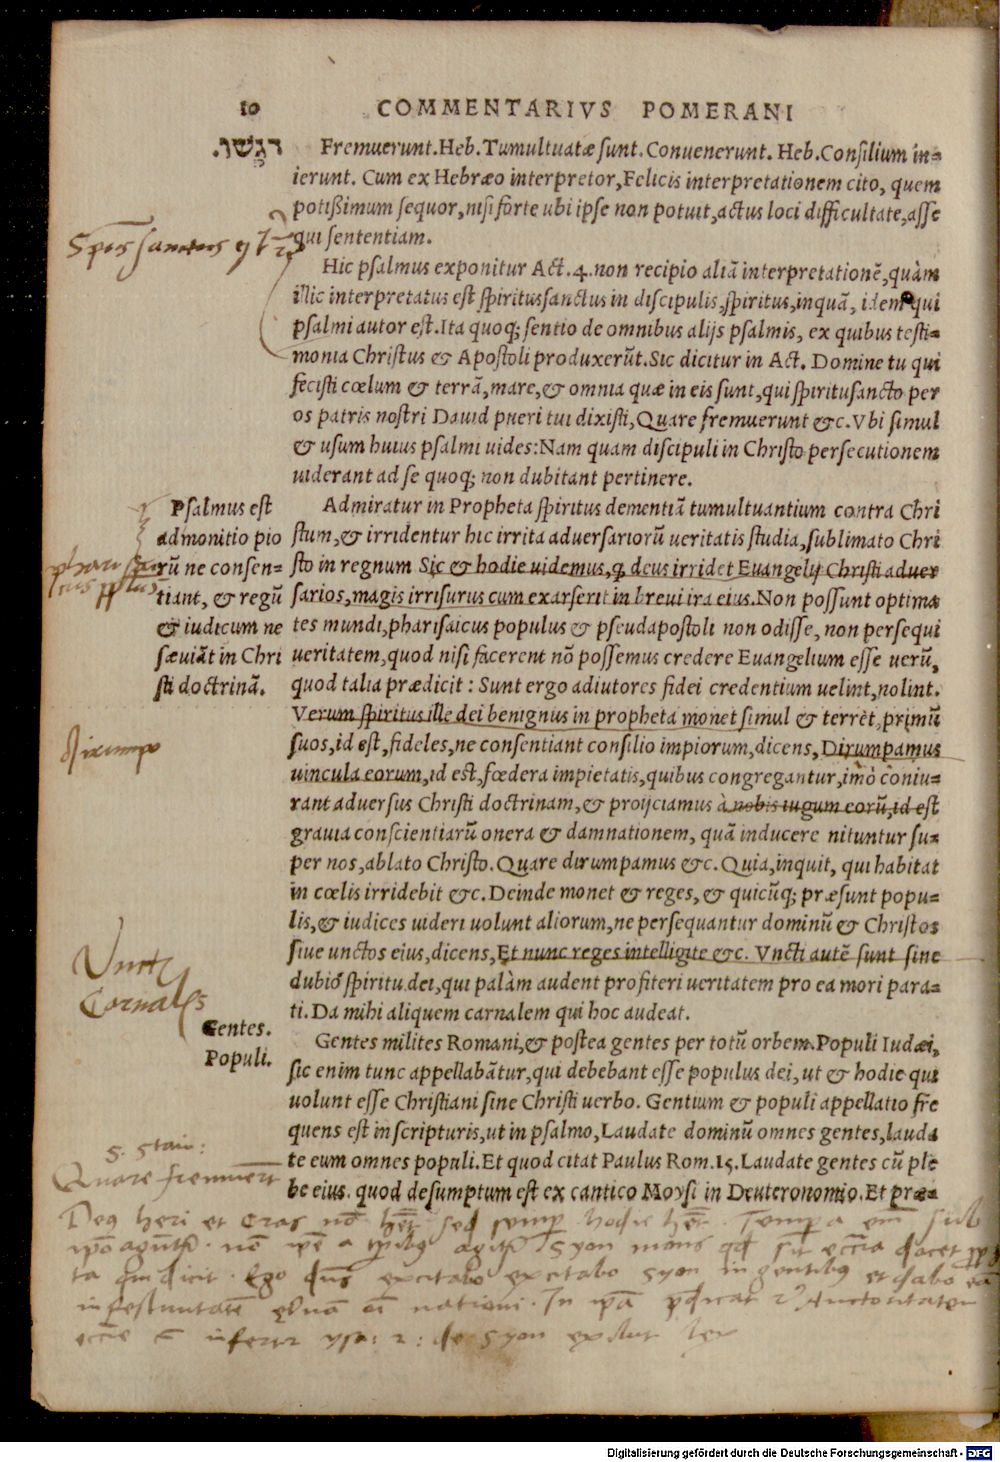 10 COMMENTARIVS POMERANI
רגשו.
Fremuerunt. Heb. Tumultuatæ sunt. Conuenerunt. Heb. Consilium in=
ierunt. Cum ex Hebræo interpretor, Felicis interpretationem cito, quem
potißimum sequor, nisi forte ubi ipse non potuit, actus loci difficultate, asse
qui sententiam.
Hic psalmus exponitur Act. 4. non recipio aliã interpretationẽ, quàm
illic interpretatus est spiritussanctus in discipulis, spiritus, inquã, idem qui
psalmi autor est. Ita quoq; sentio de omnibus alijs psalmis, ex quibus testi=
monia Christus & Apostoli produxerũt. Sic dicitur in Act. Domine tu qui
fecisti cœlum & terrã, mare, & omnia quæ in eis sunt, qui spiritusancto per
os patris nostri Dauid pueri tui dixisti, Quare fremuerunt &c. Vbi simul
& usum huius psalmi uides: Nam quam discipuli in Christo persecutionem
uiderant ad se quoq; non dubitant pertinere.
Psalmus est
admonitio pio
rũ ne consen=
tiant, & regũ
& iudicum ne
sæuiãt in Chri
sti doctrinã.
Admiratur in Propheta spiritus dementiã tumultuantium contra Chri
stum, & irridentur hic irrita aduersariorũ ueritatis studia, sublimato Chri
sto in regnum Sic & hodie uidemus, q̃ deus irridet Euangelij Christi aduer
sarios, magis irrisurus cum exarserit in breui ira eius. Non possunt optima
tes mundi, pharisaicus populus & pseudapostoli non odisse, non persequi
ueritatem, quod nisi facerent nõ possemus credere Euangelium esse uerũ,
quod talia prædicit: Sunt ergo adiutores fidei credentium uelint, nolint.
Verum spiritus ille dei benignus in propheta monet simul & terret, primũ
suos, id est, fideles, ne consentiant consilio impiorum, dicens, Dirumpamus
uincula eorum, id est, fœdera impietatis, quibus congregantur, imò coniu=
rant aduersus Christi doctrinam, & proijciamus à nobis iugum eorũ, id est
grauia conscientiarũ onera & damnationem, quã inducere nituntur su=
per nos, ablato Christo. Quare dirumpamus &c. Quia, inquit, qui habitat
in cœlis irridebit &c. Deinde monet & reges, & quicũq; præsunt popu=
lis, & iudices uideri uolunt aliorum, ne persequantur dominũ & Christos
siue unctos eius, dicens, Et nunc reges intelligite &c. Vncti autẽ sunt sine
dubio spiritu dei, qui palàm audent profiteri ueritatem pro ea mori para=
ti. Da mihi aliquem carnalem qui hoc audeat.
Vncti
Carnales
Gentes.
Populi.
Gentes milites Romani, & postea gentes per totũ orbem. Populi Iudæi,
sic enim tunc appellabãtur, qui debebant esse populus dei, ut & hodie qui
uolunt esse Christiani sine Christi uerbo. Gentium & populi appellatio fre
quens est in scripturis, ut in psalmo, Laudate dominũ omnes gentes, lauda
te eum omnes populi. Et quod citat Paulus Rom. 15. Laudate gentes cũ ple
be eius. quod desumptum est ex cantico Moysi in Deuteronomio. Et præ=
Quare fremuerũt
Digitalisierung gefördert durch die Deutsche Forschungsgemeinschaft - DFG